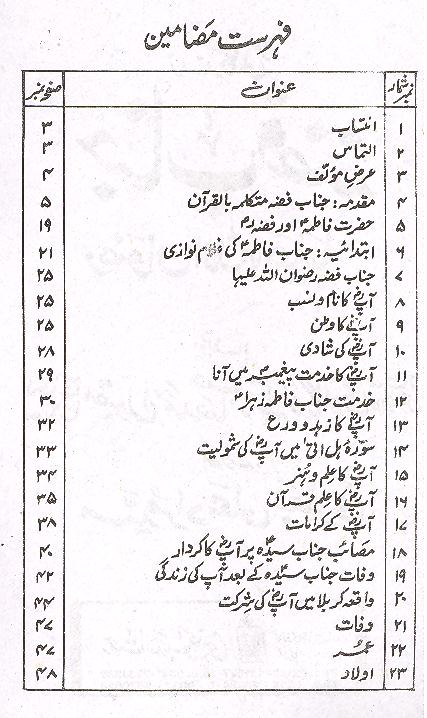 فہرست مضامین
نمبر شمار عنوان صفحہ نمبر
۱ انتساب ۳
۲ التماس ۳
۳ عرض مؤلف ۴
۴ مقدمہ: جناب فضہ متکلمہ بالقرآن ۵
۵ حضرت فاطمہؑ اور فضہؓ ۱۹
۶ ابتدائیہ: جناب فاطمہؑ کی نوازی ۲۱
۷ جناب فضہ رضوان اللہ علیہا ۲۵
۸ آپؓ کا نام و نسب ۲۵
۹ آپؓ کا وطن ۲۵
۱۰ آپؓ کی شادی ۲۸
۱۱ آپؓ کا خدمت پیغمبرؐ میں آنا ۲۹
۱۲ خدمت جناب فاطمہ زہراؑ ۳۰
۱۳ آپؓ کا زہد و ورع ۳۲
۱۴ سورۂ ہل اتیٰ میں آپؓ کی شمولیت ۳۳
۱۵ آپؓ کا علم و ہنر ۳۴
۱۶ آپؓ کا علم قرآن ۳۵
۱۷ آپؓ کے کرامات ۳۸
۱۸ مصائب جناب سیدہؑ پر آپؓ کا کردار ۴۰
۱۹ وفات جناب سیدہؑ کے بعد آپؓ کی زندگی ۴۲
۲۰ واقعہ کربلا میں آپؓ کی شرکت ۴۴
۲۱ وفات ۴۷
۲۲ عمر ۴۷
۲۳ اولاد ۴۸